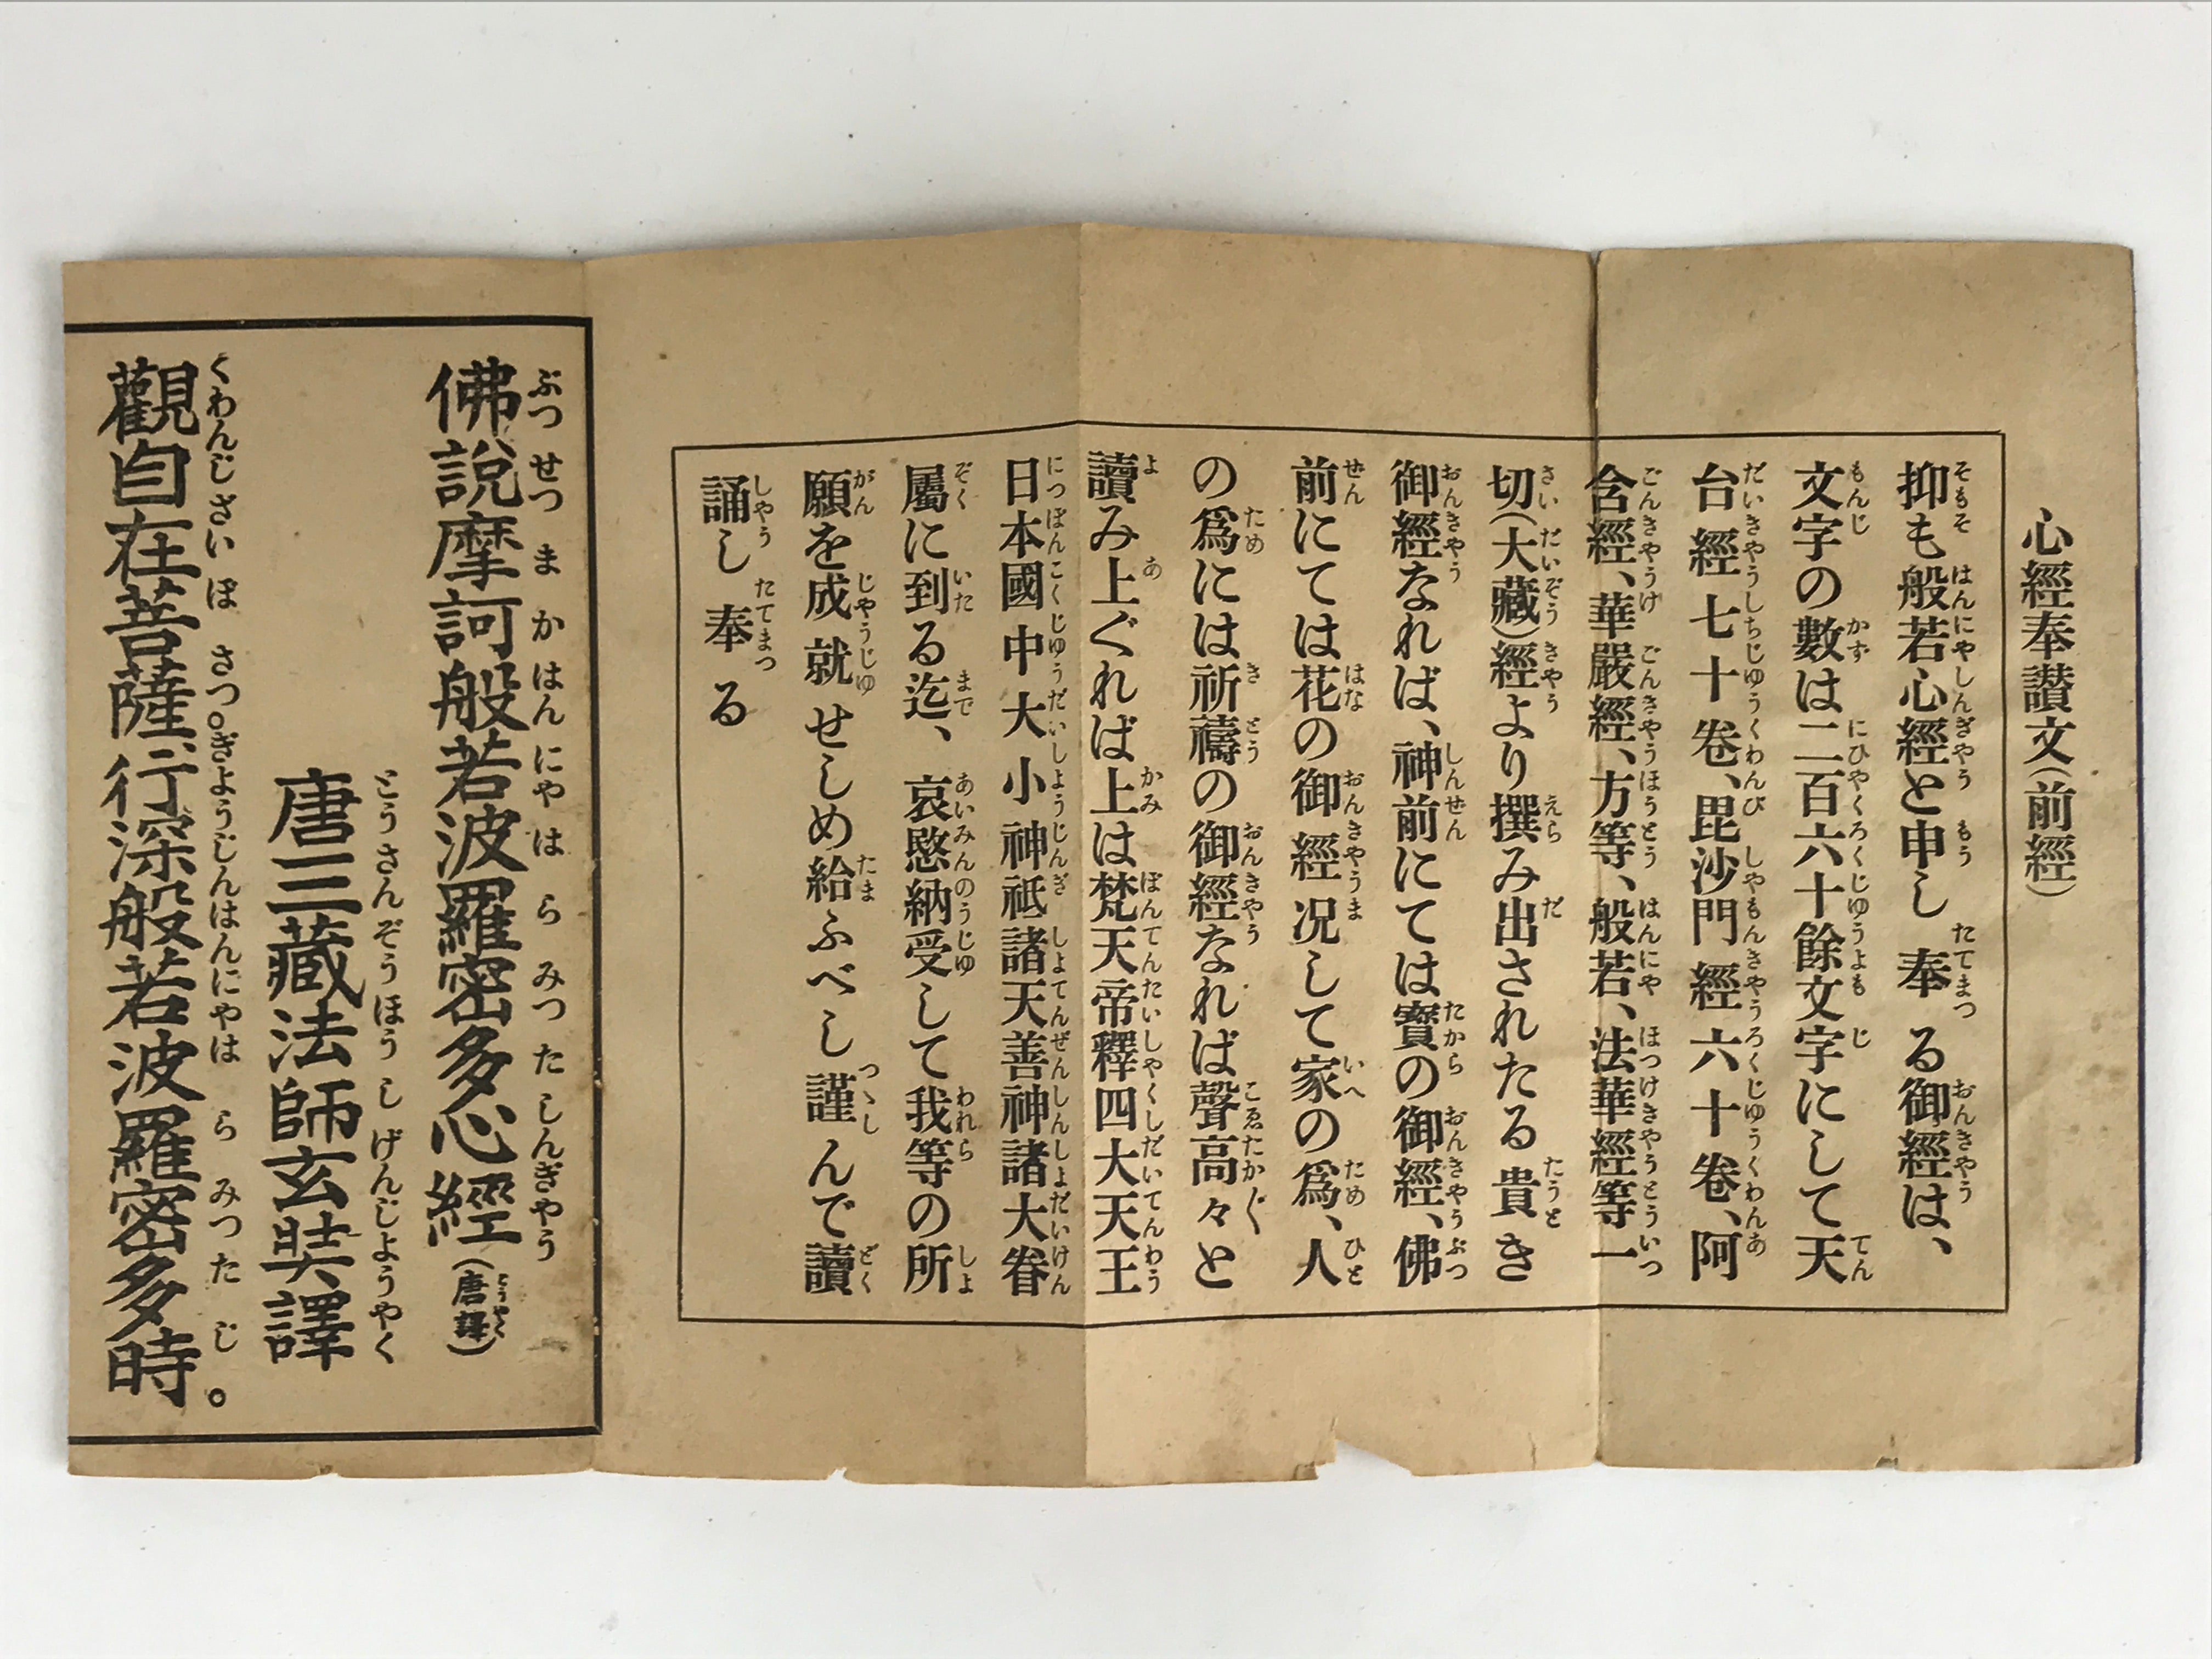 心經奉讃文(前經)
抑も般若心經と申し奉る御經は、
文字の數は二百六十餘文字にして天
台經七十卷、毘沙門經六十卷、阿
含經、華嚴經、方等、般若、法華經等一
切(大藏)經より撰み出されたる貴き
御經なれば、神前にては寳の御經、佛
前にては花の御經况して家の爲、人
の爲には祈禱の御經なれば聲高々と
讀み上ぐれば上は梵天帝釋四大天王
日本國中大小神祇諸天善神諸大眷
屬に到る迄、哀愍納受して我等の所
願を成就せしめ給ふべし謹んで讀
誦し奉る
佛說摩訶般若波羅密多心經(唐譯)
唐三藏法師玄奘譯
觀自在菩薩。行深般若波羅密多時。